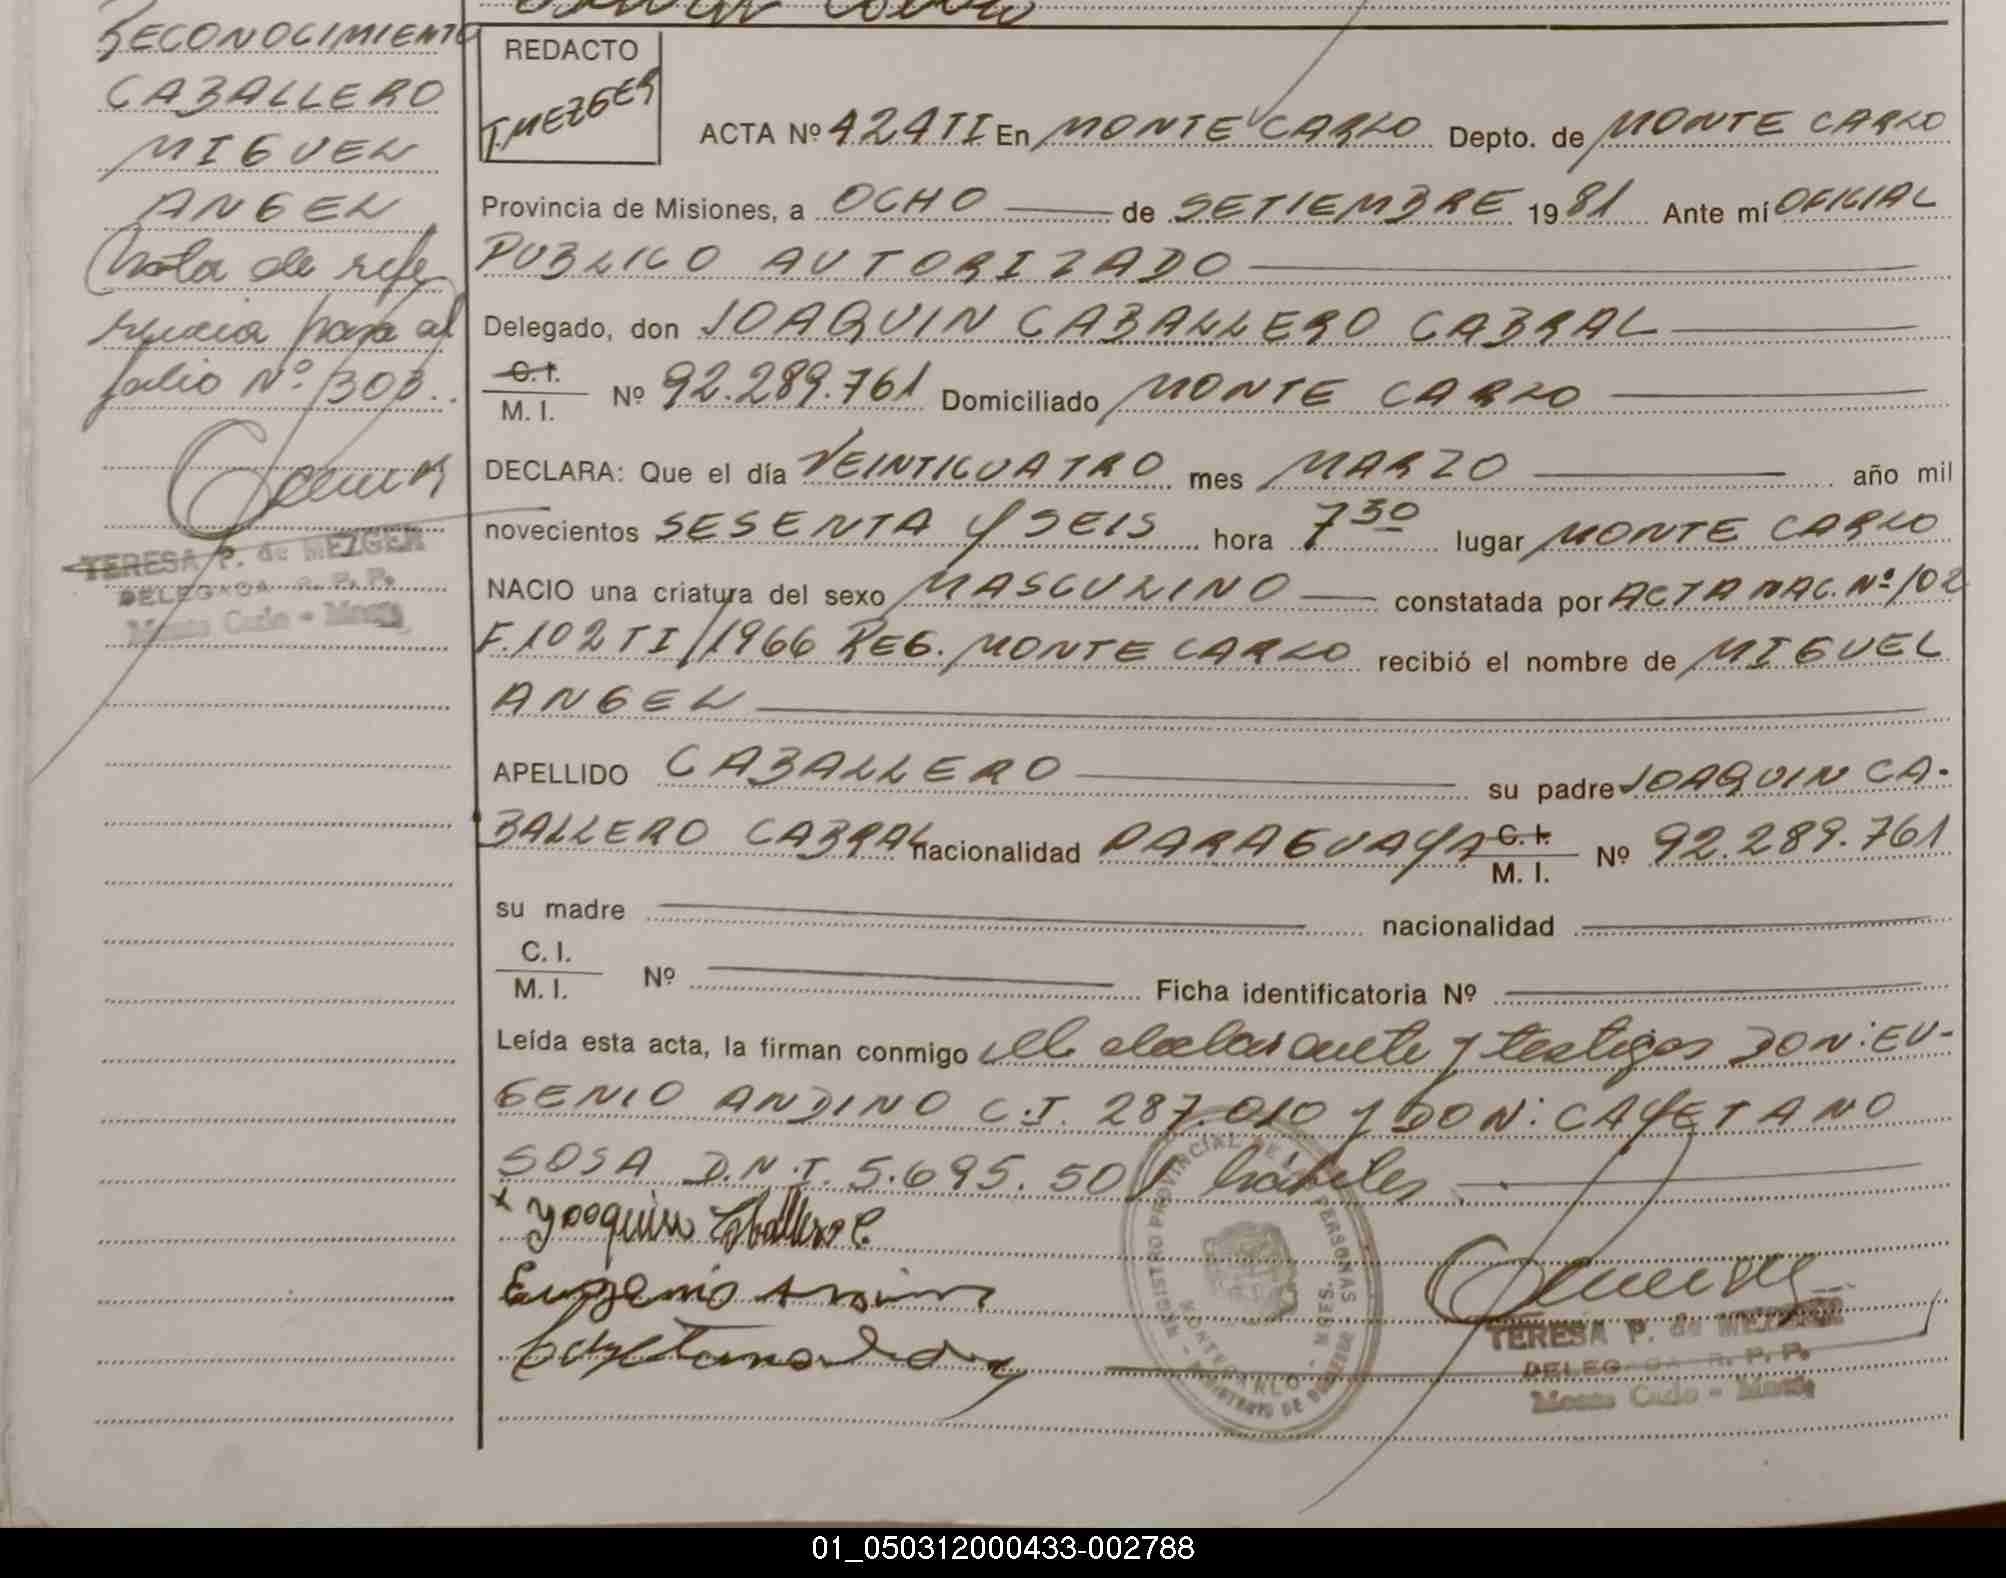 RECONOCIMIENTO
CABALLERO
MIGUEL
ANGEL
Nota de refe
rencia para al
folio Nº 303..
TERESA P. de MEZGER
DELEGADA R. P. P.
Monte Carlo - Mnes
REDACTO
T.MEZGER
ACTA Nº 424 TI En MONTE CARLO Depto. de MONTE CARLO
Provincia de Misiones, a OCHO de SETIEMBRE 1981 Ante mí OFICIAL
PUBLICO AUTORIZADO
Delegado, don JOAQUIN CABALLERO CABRAL
C. I.
M. I. Nº 92.289.761 Domiciliado MONTE CARLO
DECLARA: Que el día VEINTICUATRO mes MARZO año mil
novecientos SESENTA Y SEIS hora 7 30 lugar MONTE CARLO
NACIO una criatura del sexo MASCULINO constatada por ACTA NAC. Nº 102
F. 102 TI/1966 REG. MONTE CARLO recibió el nombre de MIGUEL
ANGEL
APELLIDO CABALLERO su padre JOAQUIN CA-
BALLERO CABRAL nacionalidad PARAGUAYA C. I. M. I. Nº 92.289.761
su madre nacionalidad
C. I.
M. I. Nº Ficha identificatoria Nº
Leída esta acta, la firman conmigo el declarante y testigos DON: EU-
GENIO ANDINO C.I. 287.010 y DON: CAYETANO
SOSA D.N.I. 5.695.501 hábiles
x Joaquin Caballero C.
Eugenio Andino
REGISTRO PROVINCIAL DE LAS PERSONAS
MONTECARLO - MNES.
MISIONES - MINISTERIO DE GOBIERNO
TERESA P. de MEZGER
DELEGADA R. P. P.
Monte Carlo - Mnes
01_050312000433-002788